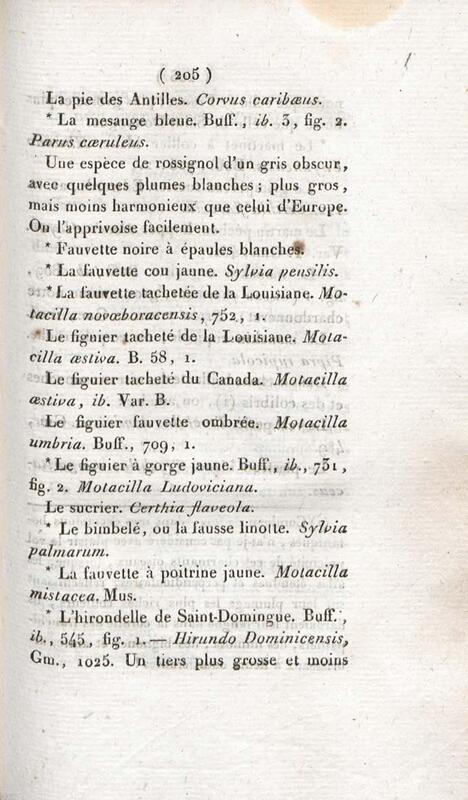 ( 205 )
La pie des Antilles. Corvus caribæus.
* La mesange bleue. Buff., ib. 3, fig. 2.
Parus cæruleus.
Une espèce de rossignol d'un gris obscur,
avec quelques plumes blanches ; plus gros,
mais moins harmonieux que celui d'Europe.
On l'apprivoise facilement.
* Fauvette noire à épaules blanches.
* La fauvette cou jaune. Sylvia pensilis.
* La fauvette tachetée de la Louisiane. Mo-
tacilla novœboracensis, 752, 1.
* Le figuier tacheté de la Louisiane. Mota-
cilla æstiva. B. 58, 1.
Le figuier tacheté du Canada. Motacilla
æstiva, ib. Var. B.
Le figuier fauvette ombrée. Motacilla
umbria. Buff., 709, 1.
* Le figuier à gorge jaune. Buff., ib., 731,
fig. 2. Motacilla Ludoviciana.
Le sucrier. Certhia flaveola.
* Le bimbelé, ou la fausse linotte. Sylvia
palmarum.
* La fauvette à poitrine jaune. Motacilla
mistacea. Mus.
* L'hirondelle de Saint-Domingue. Buff.,
ib., 545, fig. 1. — Hirundo Dominicensis,
Gm., 1025. Un tiers plus grosse et moins